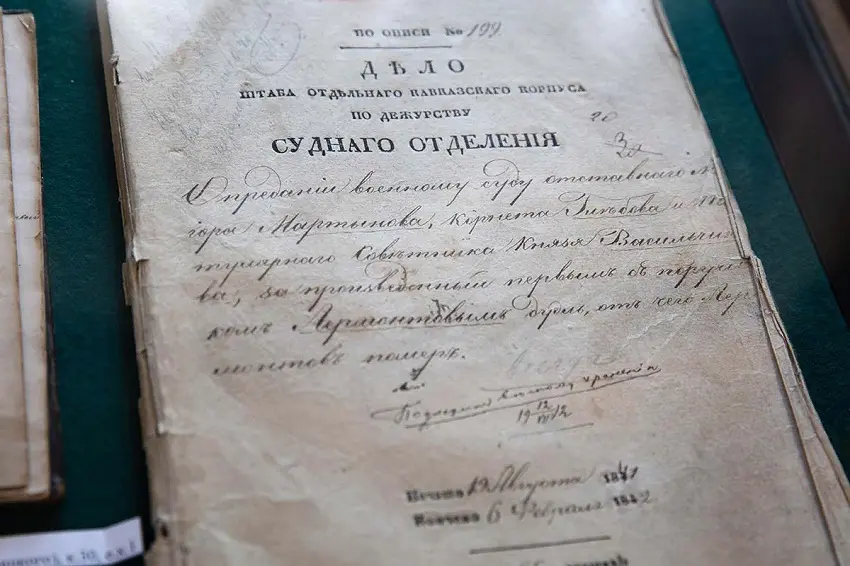 ПО ОПИСИ № 199.
ДѢЛО
ШТАБА ОТДѢЛЬНАГО КАВКАЗСКАГО КОРПУСА
ПО ДЕЖУРСТВУ
СУДНАГО ОТДЕЛЕНІЯ
20
О преданіи военному суду отставнаго Ма
іора Мартынова, корнета Глѣбова и Ти
тулярнаго Совѣтника Князя Васильчи
ва, за произведенный первымъ съ поручи
комъ Лермонтовымъ дуэль, отъ чего Лер
монтовъ померъ.
Подлежит вѣчному храненію
19 12/VIII 12
Начато 19 Августа 1841
Кончено 6 Февраля 1842